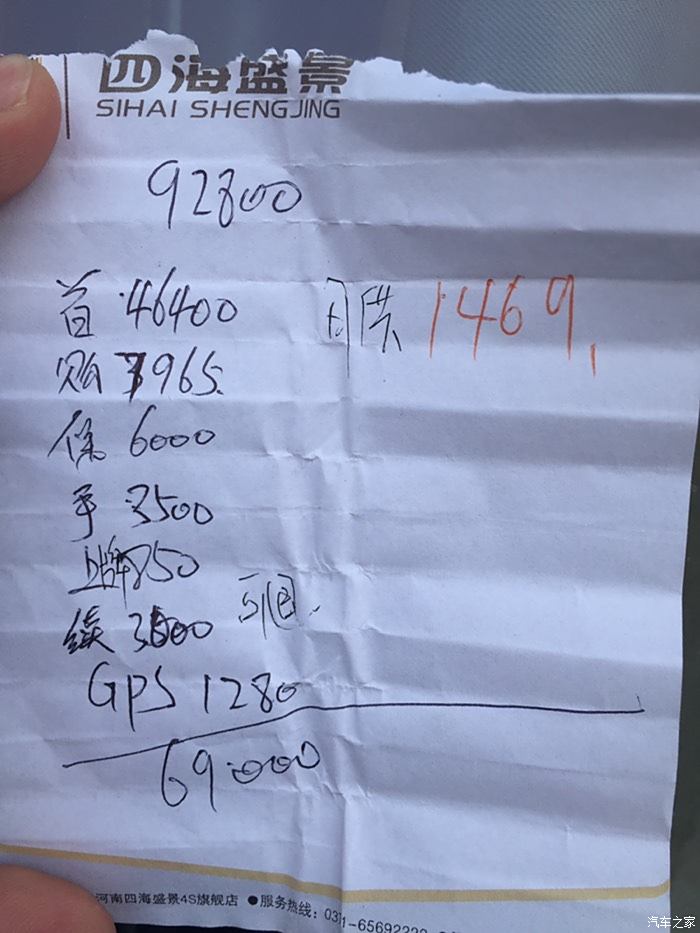 四海盛景
SIHAI SHENGJING
92800
首 46400 月供 1469
购 7965
保 6000
手 3500
上牌 750
续 3000 可退
GPS 1280
69000
河南四海盛景4S旗舰店 ●服务热线：0371-65692220
汽车之家